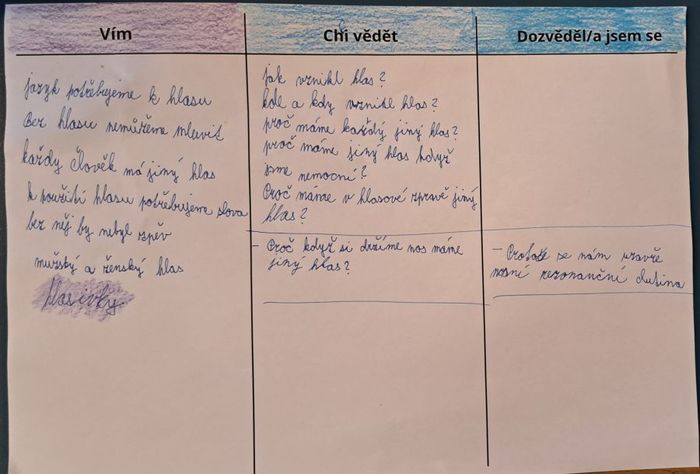 Vím
jazyk potřebujeme k hlasu
Bez hlasu nemůžeme mluvit
každy člověk má jiný hlas
k použití hlasu potřebujeme slova
bez něj by nebyl zpěv
mužský a ženský hlas
hlasivky
Chi vědět
jak vznikl hlas?
kde a kdy vznikl hlas?
proč máme každý jiný hlas?
proč máme jiný hlas když
jsme nemocní?
Proč máme v hlasové zprávě jiný
hlas?
- Proč když si držíme nos máme
jiný hlas?
Dozvěděl/a jsem se
- Protože se nám uzavře
nosní rezonanční dutina